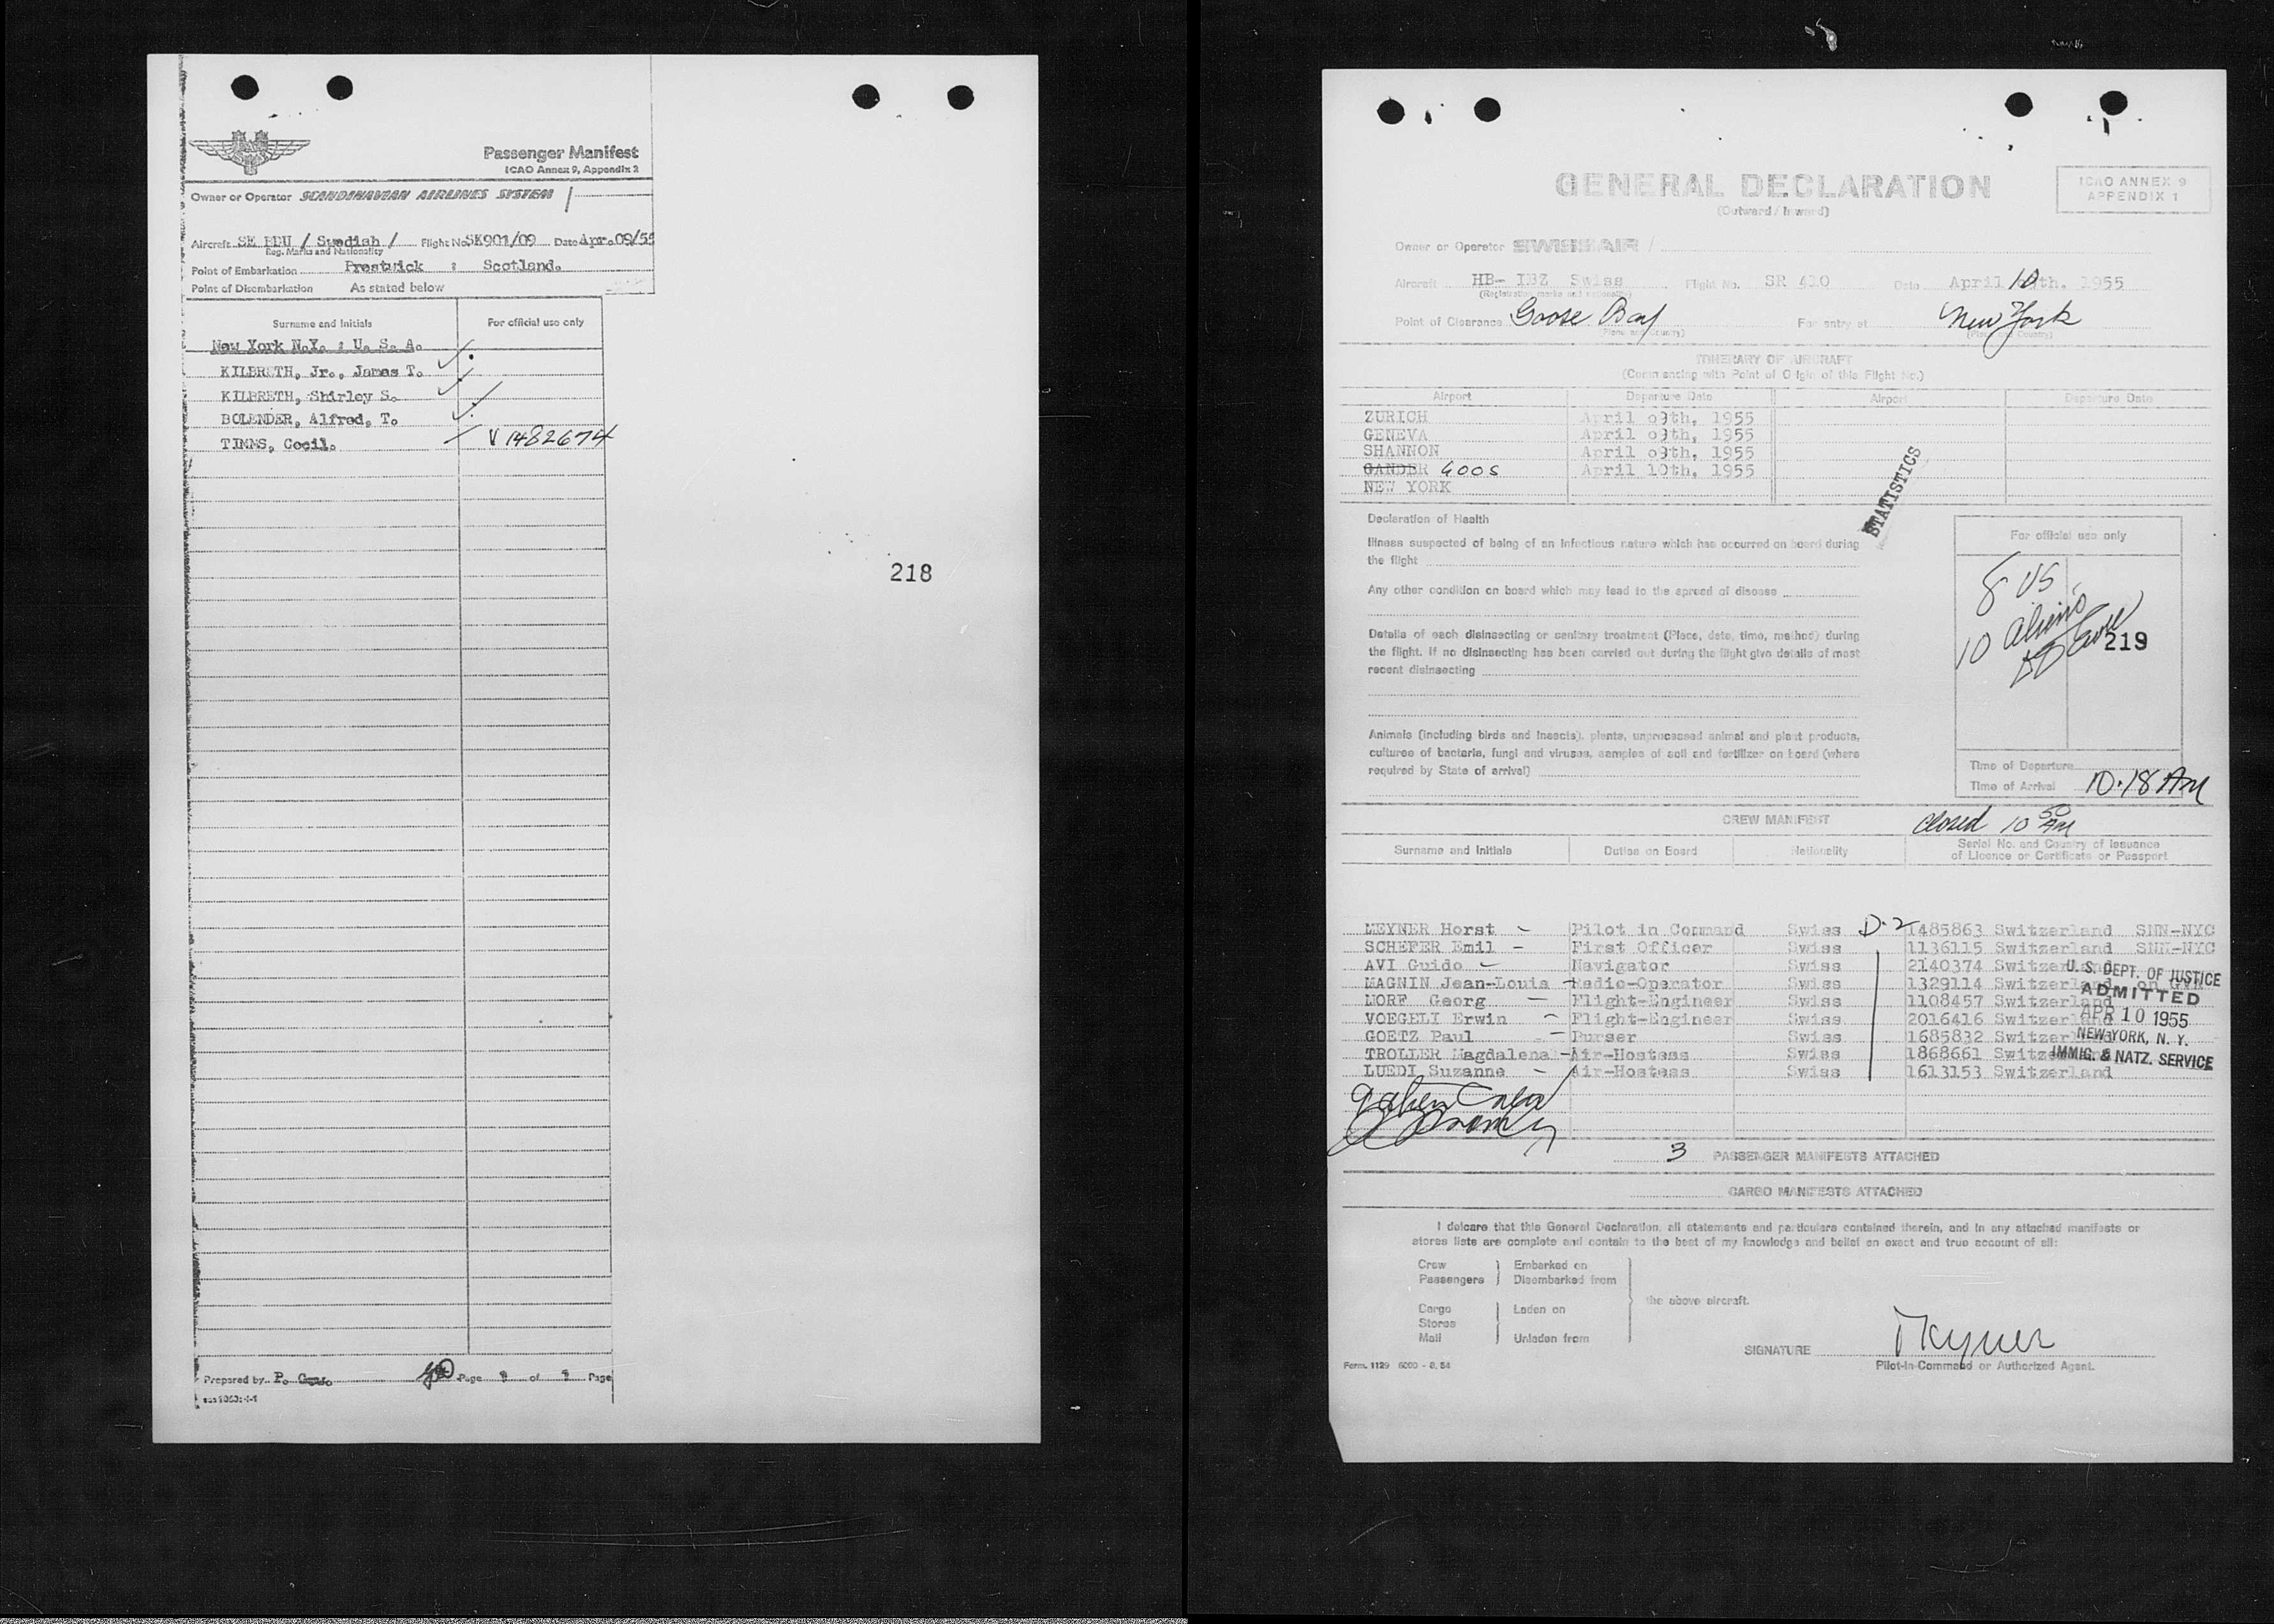 Passenger Manifest
ICAO Annex 9, Appendix 2
Owner or Operator SCANDINAVIAN AIRLINES SYSTEM /
Aircraft SE BDU / Swedish / Flight No SK901/09 Date Apr.09/55
Reg. Marks and Nationality
Point of Embarkation Prestwick : Scotland.
Point of Disembarkation As stated below
Surname and Initials For official use only
New York N.Y. : U. S. A.
KILBRETH, Jr., James T.
KILBRETH, Shirley S.
BOLENDER, Alfred, T.
TIMMS, Cecil. V 1482674
218
Prepared by P. Page of Page
GENERAL DECLARATION
(Outward / Inward)
ICAO ANNEX 9
APPENDIX 1
Owner or Operator SWISSAIR /
Aircraft HB- IBZ Swiss Flight No. SR 410 Date April 10th, 1955
(Registration marks and nationality)
Point of Clearance Goose Bay For entry at New York
(Place and Country) (Place and Country)
ITINERARY OF AIRCRAFT
(Commencing with Point of Origin of this Flight No.)
Airport Departure Date Airport Departure Date
ZURICH April 09th, 1955
GENEVA April 09th, 1955
SHANNON April 09th, 1955
GANDER GOOS April 10th, 1955
NEW YORK
STATISTICS
Declaration of Health
Illness suspected of being of an infectious nature which has occurred on board during
the flight
Any other condition on board which may lead to the spread of disease
Details of each disinsecting or sanitary treatment (Place, date, time, method) during
the flight. If no disinsecting has been carried out during the flight give details of most
recent disinsecting
Animals (including birds and insects), plants, unprocessed animal and plant products,
cultures of bacteria, fungi and viruses, samples of soil and fertilizer on board (where
required by State of arrival)
For official use only
8 US
10 aliens
219
Time of Departure
Time of Arrival 10:18 AM
closed 10 50 AM
CREW MANIFEST
Surname and Initials Duties on Board Nationality Serial No. and Country of Issuance
of Licence or Certificate or Passport
MEYNER Horst Pilot in Command Swiss D-2 1485863 Switzerland SNN-NYC
SCHEFER Emil First Officer Swiss 1136115 Switzerland SNN-NYC
AVI Guido Navigator Swiss 2140374 Switzerland
MAGNIN Jean-Louis Radio-Operator Swiss 1329114 Switzerland
MORF Georg Flight-Engineer Swiss 1108457 Switzerland
VOEGELI Erwin Flight-Engineer Swiss 2016416 Switzerland
GOETZ Paul Purser Swiss 1685832 Switzerland
TROLLER Magdalena Air-Hostess Swiss 1868661 Switzerland
LUEDI Suzanne Air-Hostess Swiss 1613153 Switzerland
U. S. DEPT. OF JUSTICE
ADMITTED
APR 10 1955
NEW YORK, N. Y.
IMMIG. & NATZ. SERVICE
3 PASSENGER MANIFESTS ATTACHED
CARGO MANIFESTS ATTACHED
I delcare that this General Declaration, all statements and particulars contained therein, and in any attached manifests or
stores lists are complete and contain to the best of my knowledge and belief an exact and true account of all:
Crew Embarked on
Passengers Disembarked from
the above aircraft.
Cargo Laden on
Stores
Mail Unladen from
SIGNATURE Meyner
Pilot-in-Command or Authorized Agent.
Form. 1129 6000 - 8. 54